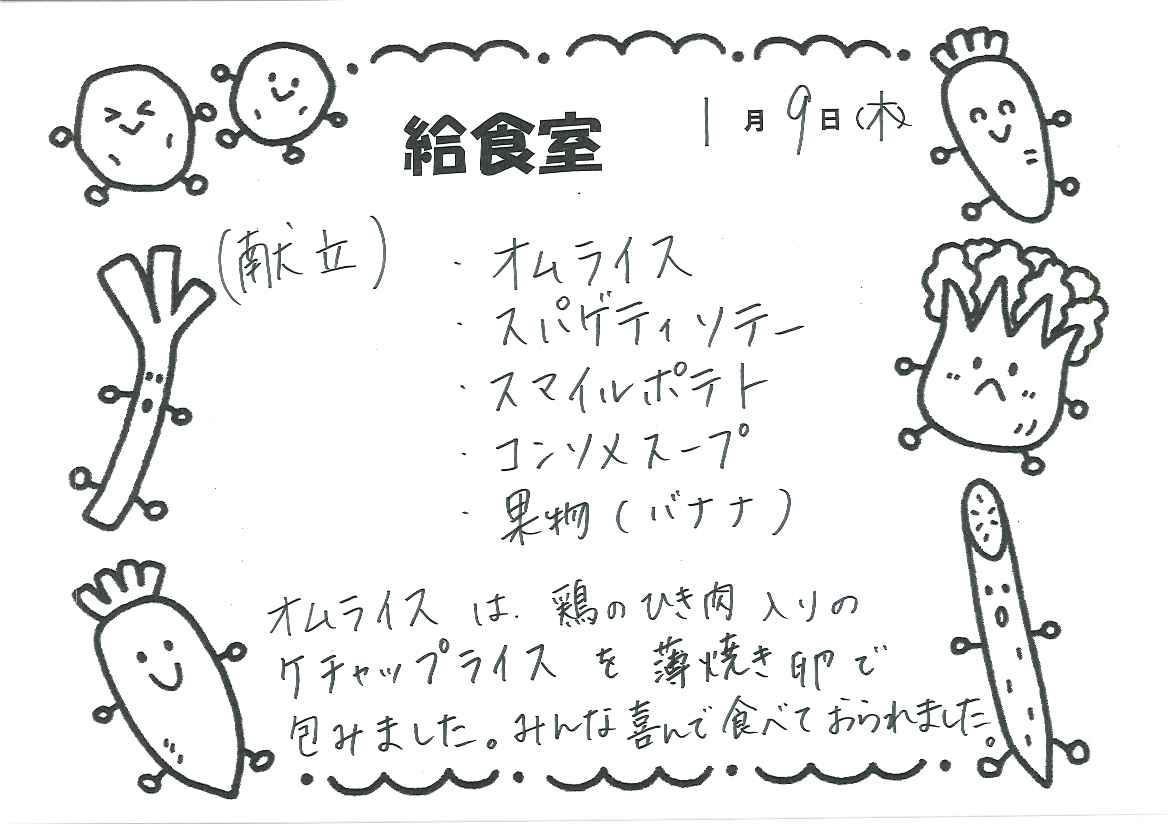 給食室 1月9日(木)
(献立) ・オムライス
・スパゲティソテー
・スマイルポテト
・コンソメスープ
・果物(バナナ)
オムライスは、鶏のひき肉入りの
ケチャップライスを薄焼き卵で
包みました。みんな喜んで食べておられました。